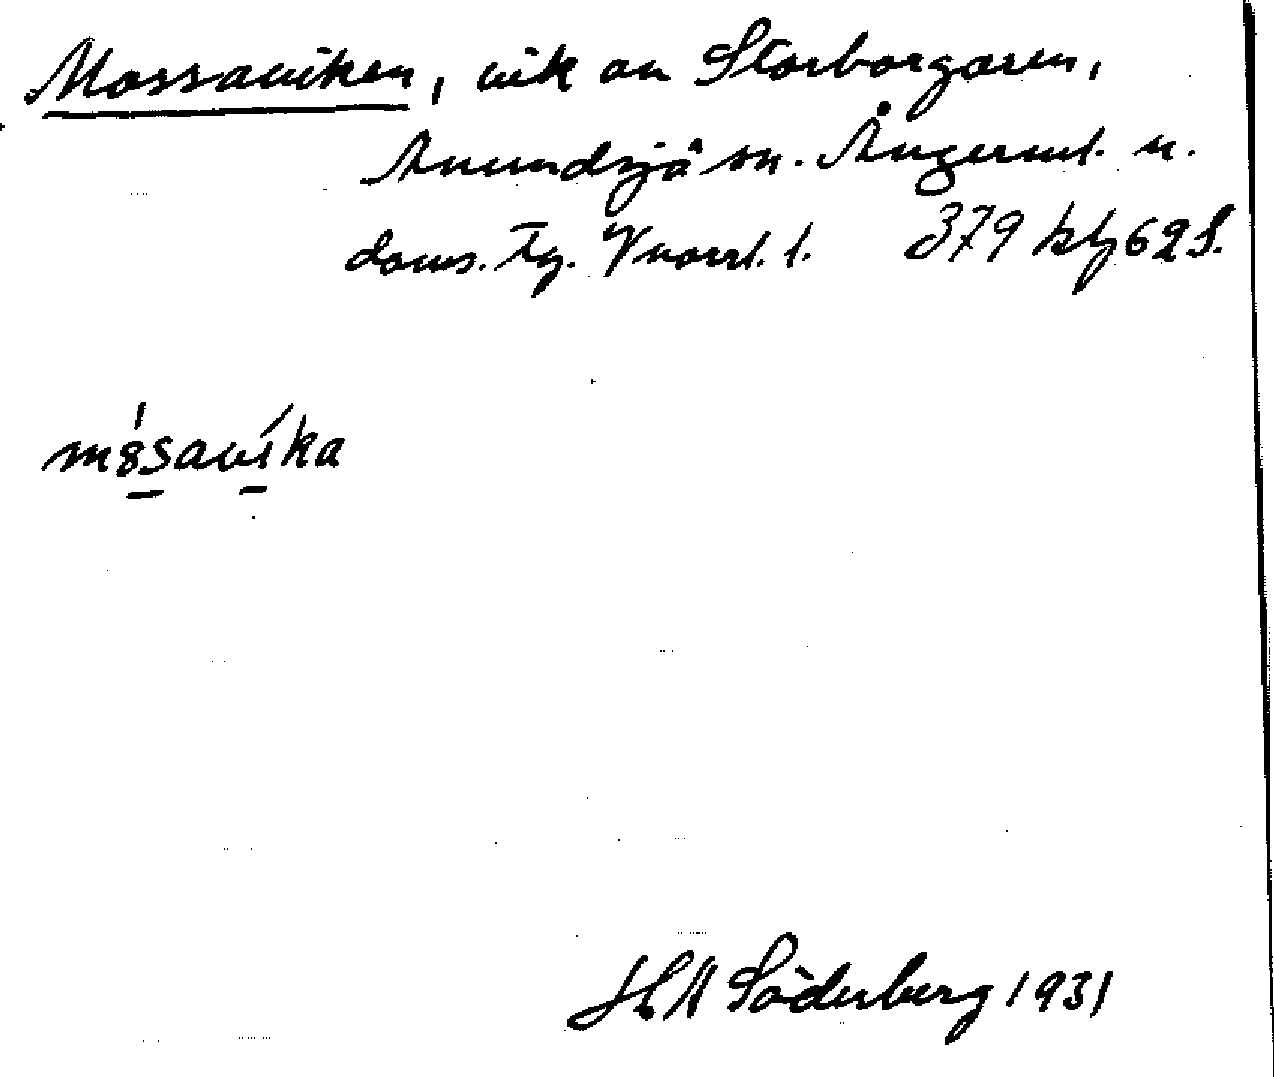 Mossaviken, vik av Storborgaren,
Anundsjö sn. Ångerml. n.
doms. Tg. Vnorrl. l. 379 blg 62 S.
måsavika
HA Söderberg 1931